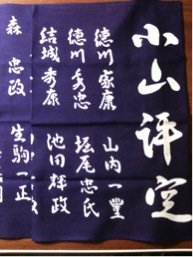 小山評定
徳川家康　山内一豊
徳川秀忠　堀尾忠氏
結城秀康　池田輝政
森忠政　生駒一正